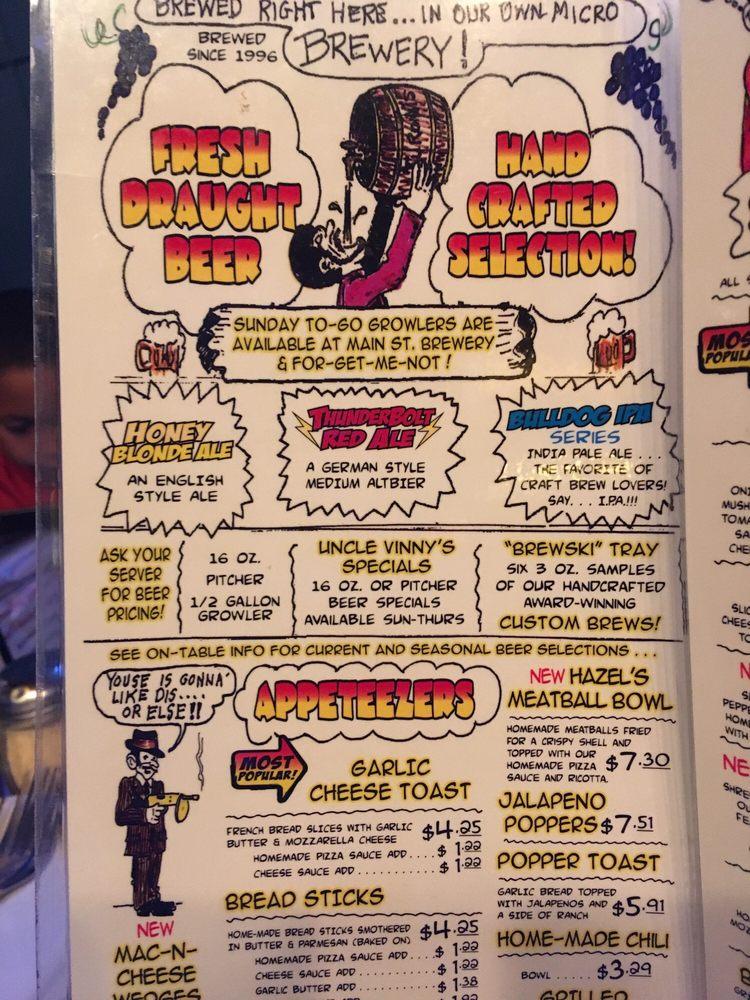 BREWED RIGHT HERE...IN OUR OWN MICRO
BREWED
SINCE 1996
BREWERY!
FRESH
DRAUGHT
BEER
HAND
CRAFTED
SELECTION!
SUNDAY TO-GO GROWLERS ARE
AVAILABLE AT MAIN ST. BREWERY
& FOR-GET-ME-NOT!
HONEY
BLONDE ALE
AN ENGLISH
STYLE ALE
THUNDERBOLT
RED ALE
A GERMAN STYLE
MEDIUM ALTBIER
BULLDOG IPA
SERIES
INDIA PALE ALE . . .
THE FAVORITE OF
CRAFT BREW LOVERS!
SAY. . . I.P.A.!!!
ASK YOUR
SERVER
FOR BEER
PRICING!
16 OZ.
PITCHER
1/2 GALLON
GROWLER
UNCLE VINNY'S
SPECIALS
16 OZ. OR PITCHER
BEER SPECIALS
AVAILABLE SUN-THURS
"BREWSKI" TRAY
SIX 3 OZ. SAMPLES
OF OUR HANDCRAFTED
AWARD-WINNING
CUSTOM BREWS!
SEE ON-TABLE INFO FOR CURRENT AND SEASONAL BEER SELECTIONS . . .
YOUSE IS GONNA'
LIKE DIS....
OR ELSE!!
APPETEEZERS
MOST
POPULAR!
GARLIC
CHEESE TOAST
FRENCH BREAD SLICES WITH GARLIC
BUTTER & MOZZARELLA CHEESE $4.25
HOMEMADE PIZZA SAUCE ADD .... $ 1.22
CHEESE SAUCE ADD ............ $ 1.22
BREAD STICKS
HOME-MADE BREAD STICKS SMOTHERED
IN BUTTER & PARMESAN (BAKED ON) $4.25
HOMEMADE PIZZA SAUCE ADD ....$ 1.22
CHEESE SAUCE ADD ..........$ 1.22
GARLIC BUTTER ADD ..........$ 1.38
NEW
MAC-N-
CHEESE
WEDGES
NEW HAZEL'S
MEATBALL BOWL
HOMEMADE MEATBALLS FRIED
FOR A CRISPY SHELL AND
TOPPED WITH OUR
HOMEMADE PIZZA $7.30
SAUCE AND RICOTTA.
JALAPENO
POPPERS $7.51
POPPER TOAST
GARLIC BREAD TOPPED
WITH JALAPENOS AND
A SIDE OF RANCH $5.91
HOME-MADE CHILI
BOWL ..... $3.29
GRILLED
ALL
MOS
POPULA